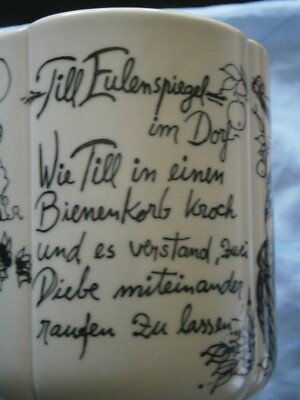 Till Eulenspiegel
im Dorf
Wie Till in einen
Bienenkorb kroch
und es verstand, zwei
Diebe miteinander
raufen zu lassen